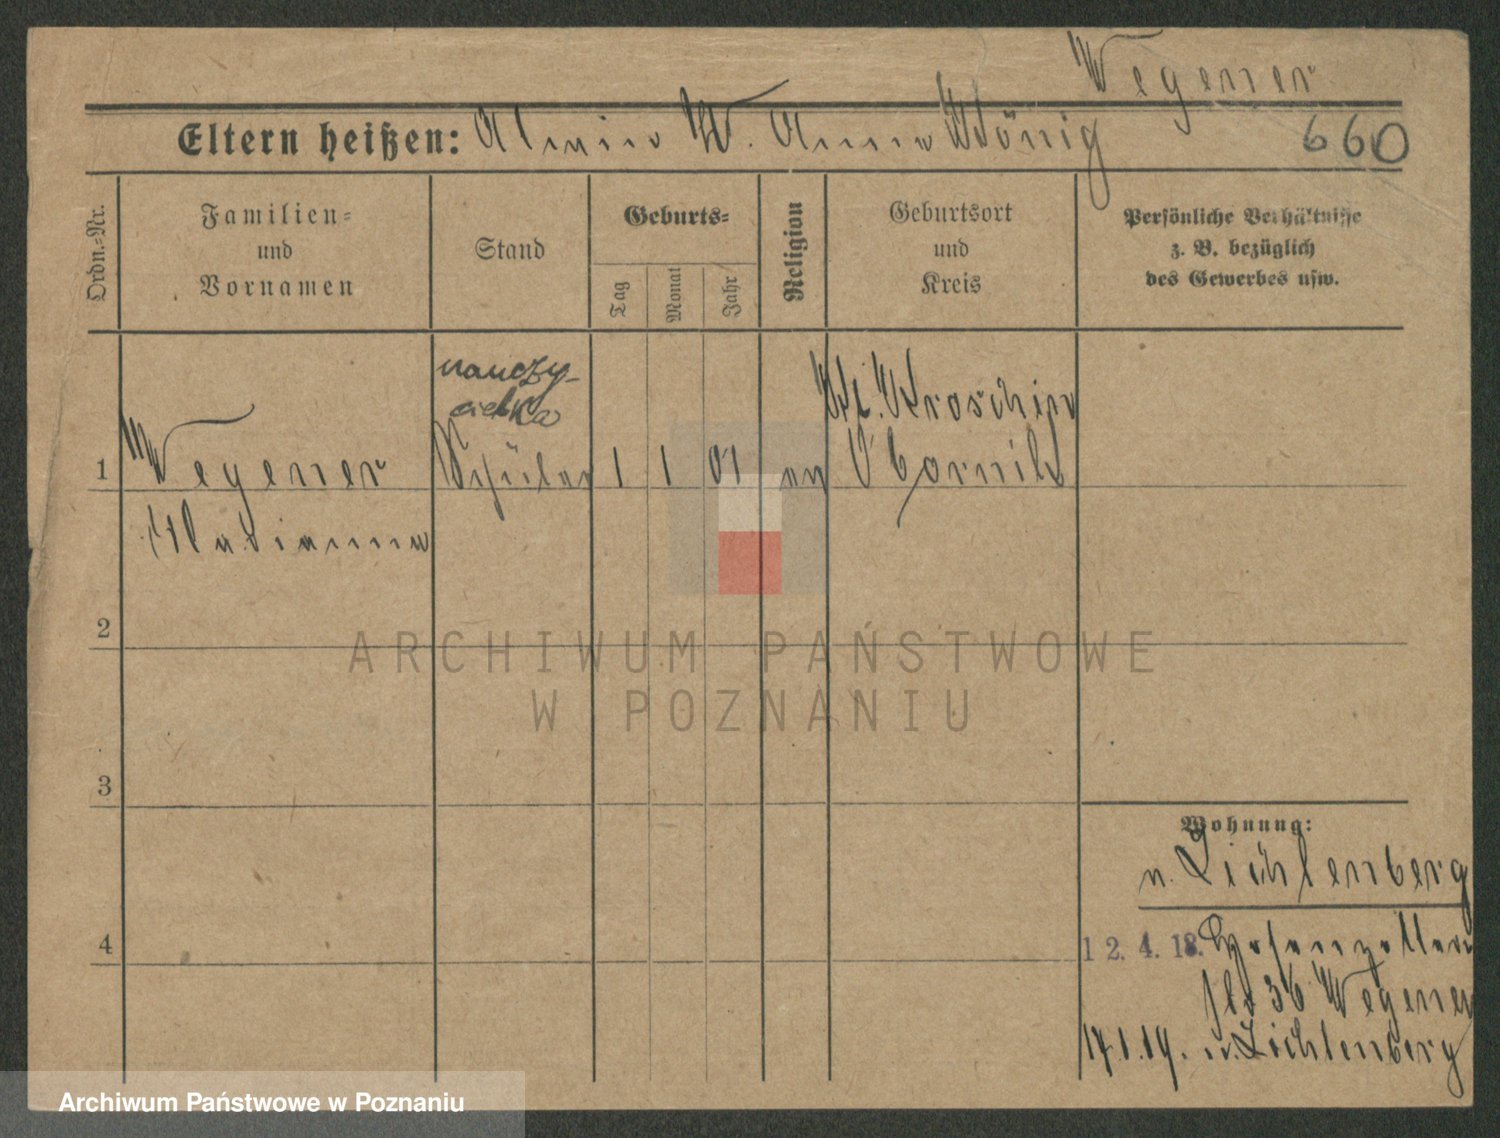 Wegener
Eltern heißen: Alwin W. Anna König
660
Ordn.-Nr.
Familien-
und
Vornamen
Stand
Geburts-
Tag
Monat
Jahr
Religion
Geburtsort
und
Kreis
Persönliche Verhältnisse
z. B. bezüglich
des Gewerbes usw.
nauczy-
cielka
Kl. Kroschin
1
Wegener
Schüler
1
1
01
ev
Obornik
Marianna
2
ARCHIWUM PAŃSTWOWE
W POZNANIU
3
Wohnung:
n. Lichtenberg
4
12. 4. 18. Hohenzollern
36 Wegener
17.1.19. n. Lichtenberg
Archiwum Państwowe w Poznaniu